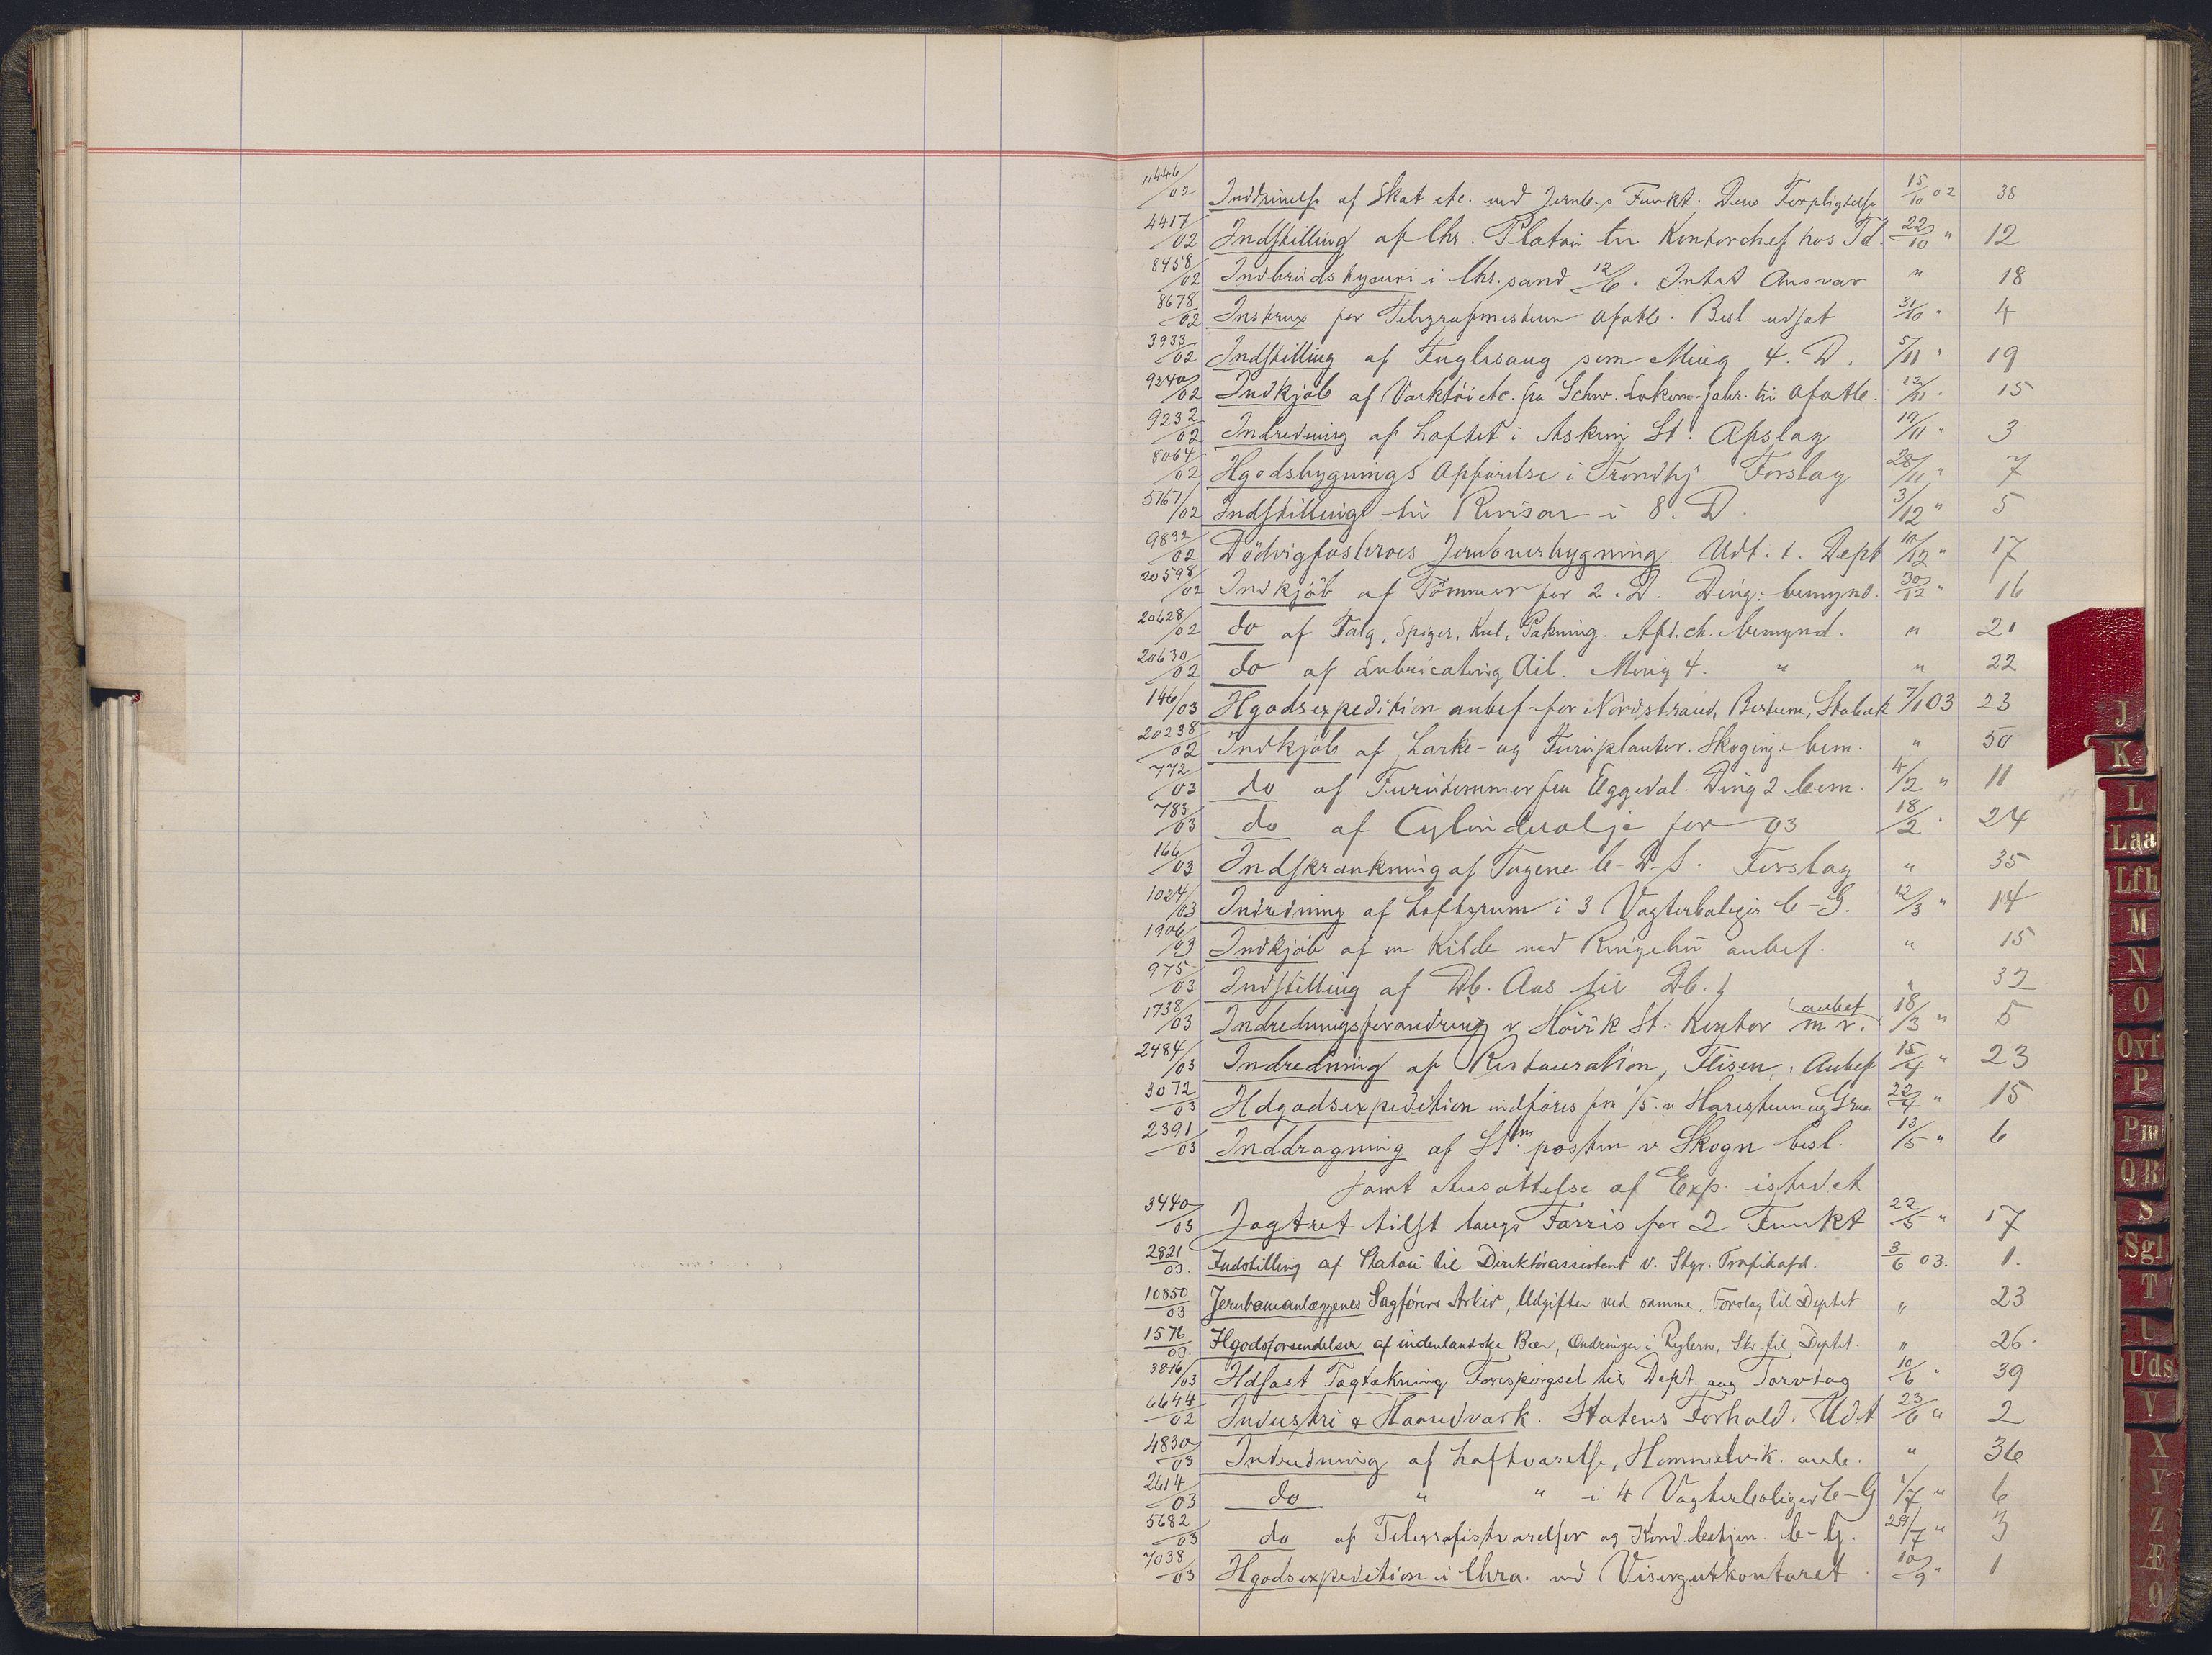 11446/02 Inddrivelse af Skat etc. ved Jernb.s Funkt. Dens Forpligtelse 15/10 02 38
4417/02 Indstilling af Chr. Platou til Kontorchef hos Td. 22/10 " 12
8458/02 Indbrudstyveri i Chr.sand 12/6. Intet Ansvar " 18
8678/02 Instrux for Telegrafmesteren Ofotb. Besl. udsat 31/10 " 4
3933/02 Indstilling af Fuglesang som Ming 4. D. 5/11 " 19
9240/02 Indkjøb af Værktøi etc. fra Schw. Lokom.fabr. til Ofotb. 12/11 " 15
9232/02 Indredning af Loftet i Askim St. Afslag 19/11 " 3
8064/02 Ilgodsbygnings Opførelse i Trondhj. Forslag 28/11 " 7
5167/02 Indstilling til Revisor i 8. D. 3/12 " 5
9832/02 Dødvigfosbroes Jernoverbygning. Udt. t. Dept 10/12 " 17
20598/02 Indkjøb af Tømmer for 2. D. Ding. bemynd. 30/12 " 16
20628/02 do af Talg, Spiger, Kul, Pakning. Afd.ch. bemynd. " 21
20630/02 do af Lubricating Oil. Ming 4. " " 22
146/03 Ilgodsexpedition anbef. for Nordstrand, Bestum, Stabæk 7/1 03 23
20238/02 Indkjøb af Lærke- og Furuplanter. Skoging. bem. " 50
772/03 do af Furutømmer fra Eggedal. Ding 2 bem. 4/2 " 11
783/03 do af Cylinderolje for 03 18/2 " 24
166/03 Indskrænkning af Togene C-D-S. Forslag " 35
1024/03 Indredning af Loftsrum i 3 Vogterboliger C-G. 12/3 " 14
1906/03 Indkjøb af en Kilde ved Ringebu anbef. " 15
975/03 Indstilling af Db. Aas til Db. " 32
1738/03 Indredningsforandring v Høvik St. Kontor m v. anbef 18/3 " 5
2484/03 Indredning af Restauration, Flisen, Anbef 15/4 " 23
3072/03 Ilgodsexpedition indføres fra 1/5 v Harestuen og Gran 22/4 " 15
2391/03 Inddragning af St.m posten v. Skogn besl. 13/5 " 6
samt Ansættelse af Exp. istedet
3440/03 Jagtret tilst. langs Farris for 2 Funkt 22/5 " 17
2821/03. Indstilling af Platou til Direktørassistent v. Styr. Trafikafd. 3/6 03. 1.
10850/03 Jernbaneanlæggenes Sagførers Arkiv, Udgifter ved samme, Forslag til Deptet " 23
1576/03. Ilgodsforsendelser af indenlandske Bær, Ændringer i Reglerne, Skr. til Deptet. " 26.
3846/03 Ildfast Tagtækning Forespørgsel til Dept. ang Torvtag 10/6 " 39
6644/02 Industri & Haandværk. Statens Forhold. Udt 23/6 " 2
4830/03 Indredning af Loftværelse, Hommelvik. anb. " 36
2614/03 do " " i 4 Vogterboliger C-G 1/7 " 6
5682/03 do af Telegrafistværelser og Kond. C-G. 29/7 " 3
7038/03 Ilgodsexpedition i Chra. ved Visergutkontoret. 10/9 " 1
J
K
L
Laa
Lfh
M
N
O
Ovf
P
Pm
QR
S
Sgl
T
U
Uds
V
X
Y
Z
Æ
Ø